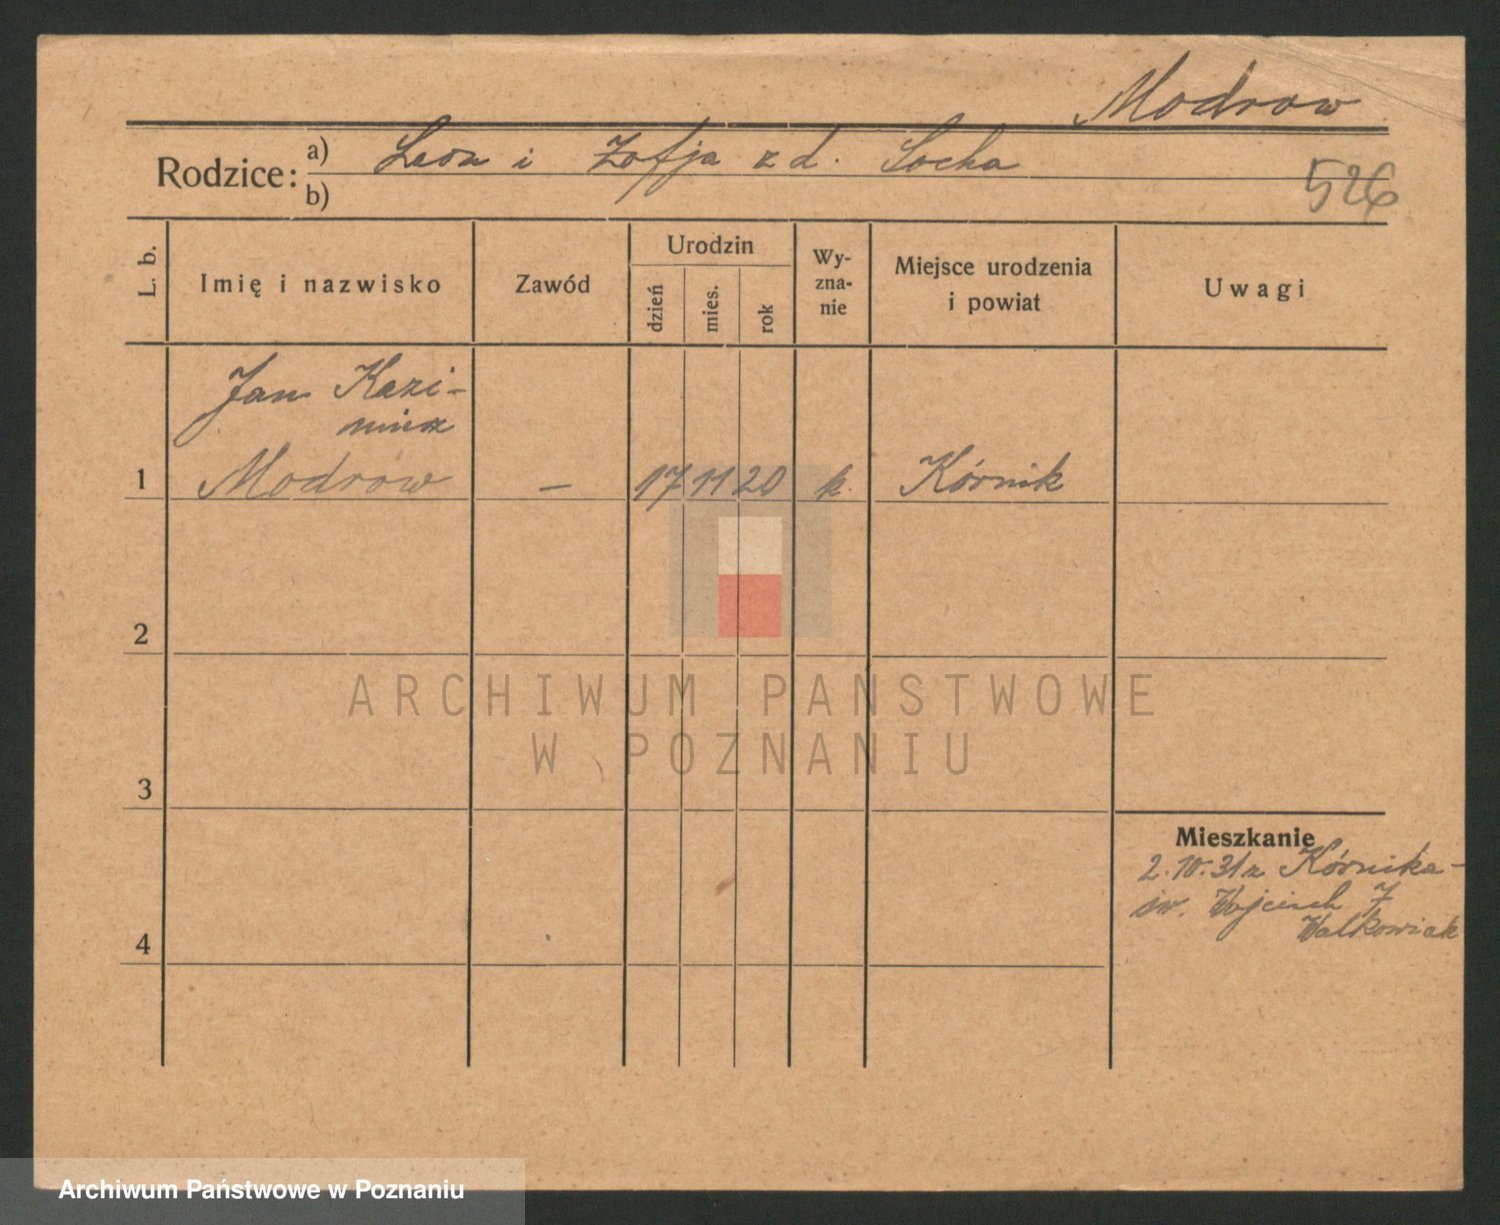 Modrow
Rodzice: a) Leon i Zofja z d. Socha
b)
526
L. b.
Imię i nazwisko
Zawód
Urodzin
dzień
mies.
rok
Wy-
zna-
nie
Miejsce urodzenia
i powiat
Uwagi
Jan Kazi-
mierz
1 Modrow – 17 11 20 k. Kórnik
2
3
4
Mieszkanie
2.10.31 z Kórnika –
św. Wojciech 7
Walkowiak
ARCHIWUM PAŃSTWOWE
W POZNANIU
Archiwum Państwowe w Poznaniu